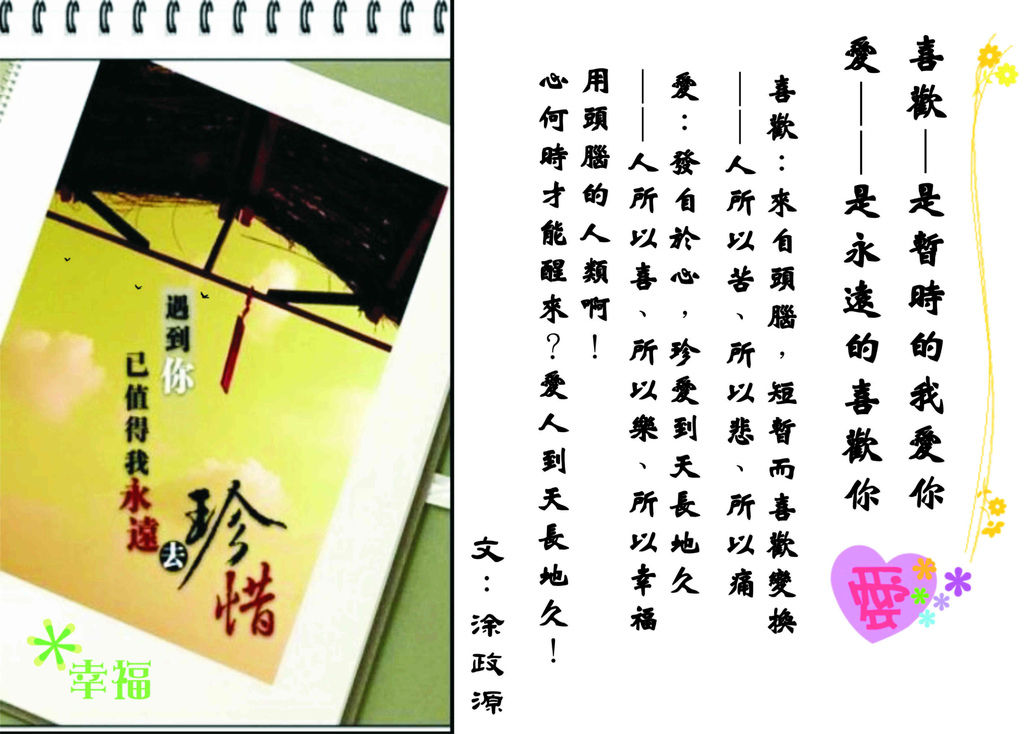 喜歡—是暫時的我愛你
愛——是永遠的喜歡你
喜歡：來自頭腦，短暫而喜歡變換
——人所以苦、所以悲、所以痛
愛：發自於心，珍愛到天長地久
——人所以喜、所以樂、所以幸福
用頭腦的人類啊！
心何時才能醒來？愛人到天長地久！
文：涂政源
愛
遇到你
已值得我永遠去
珍惜
幸福